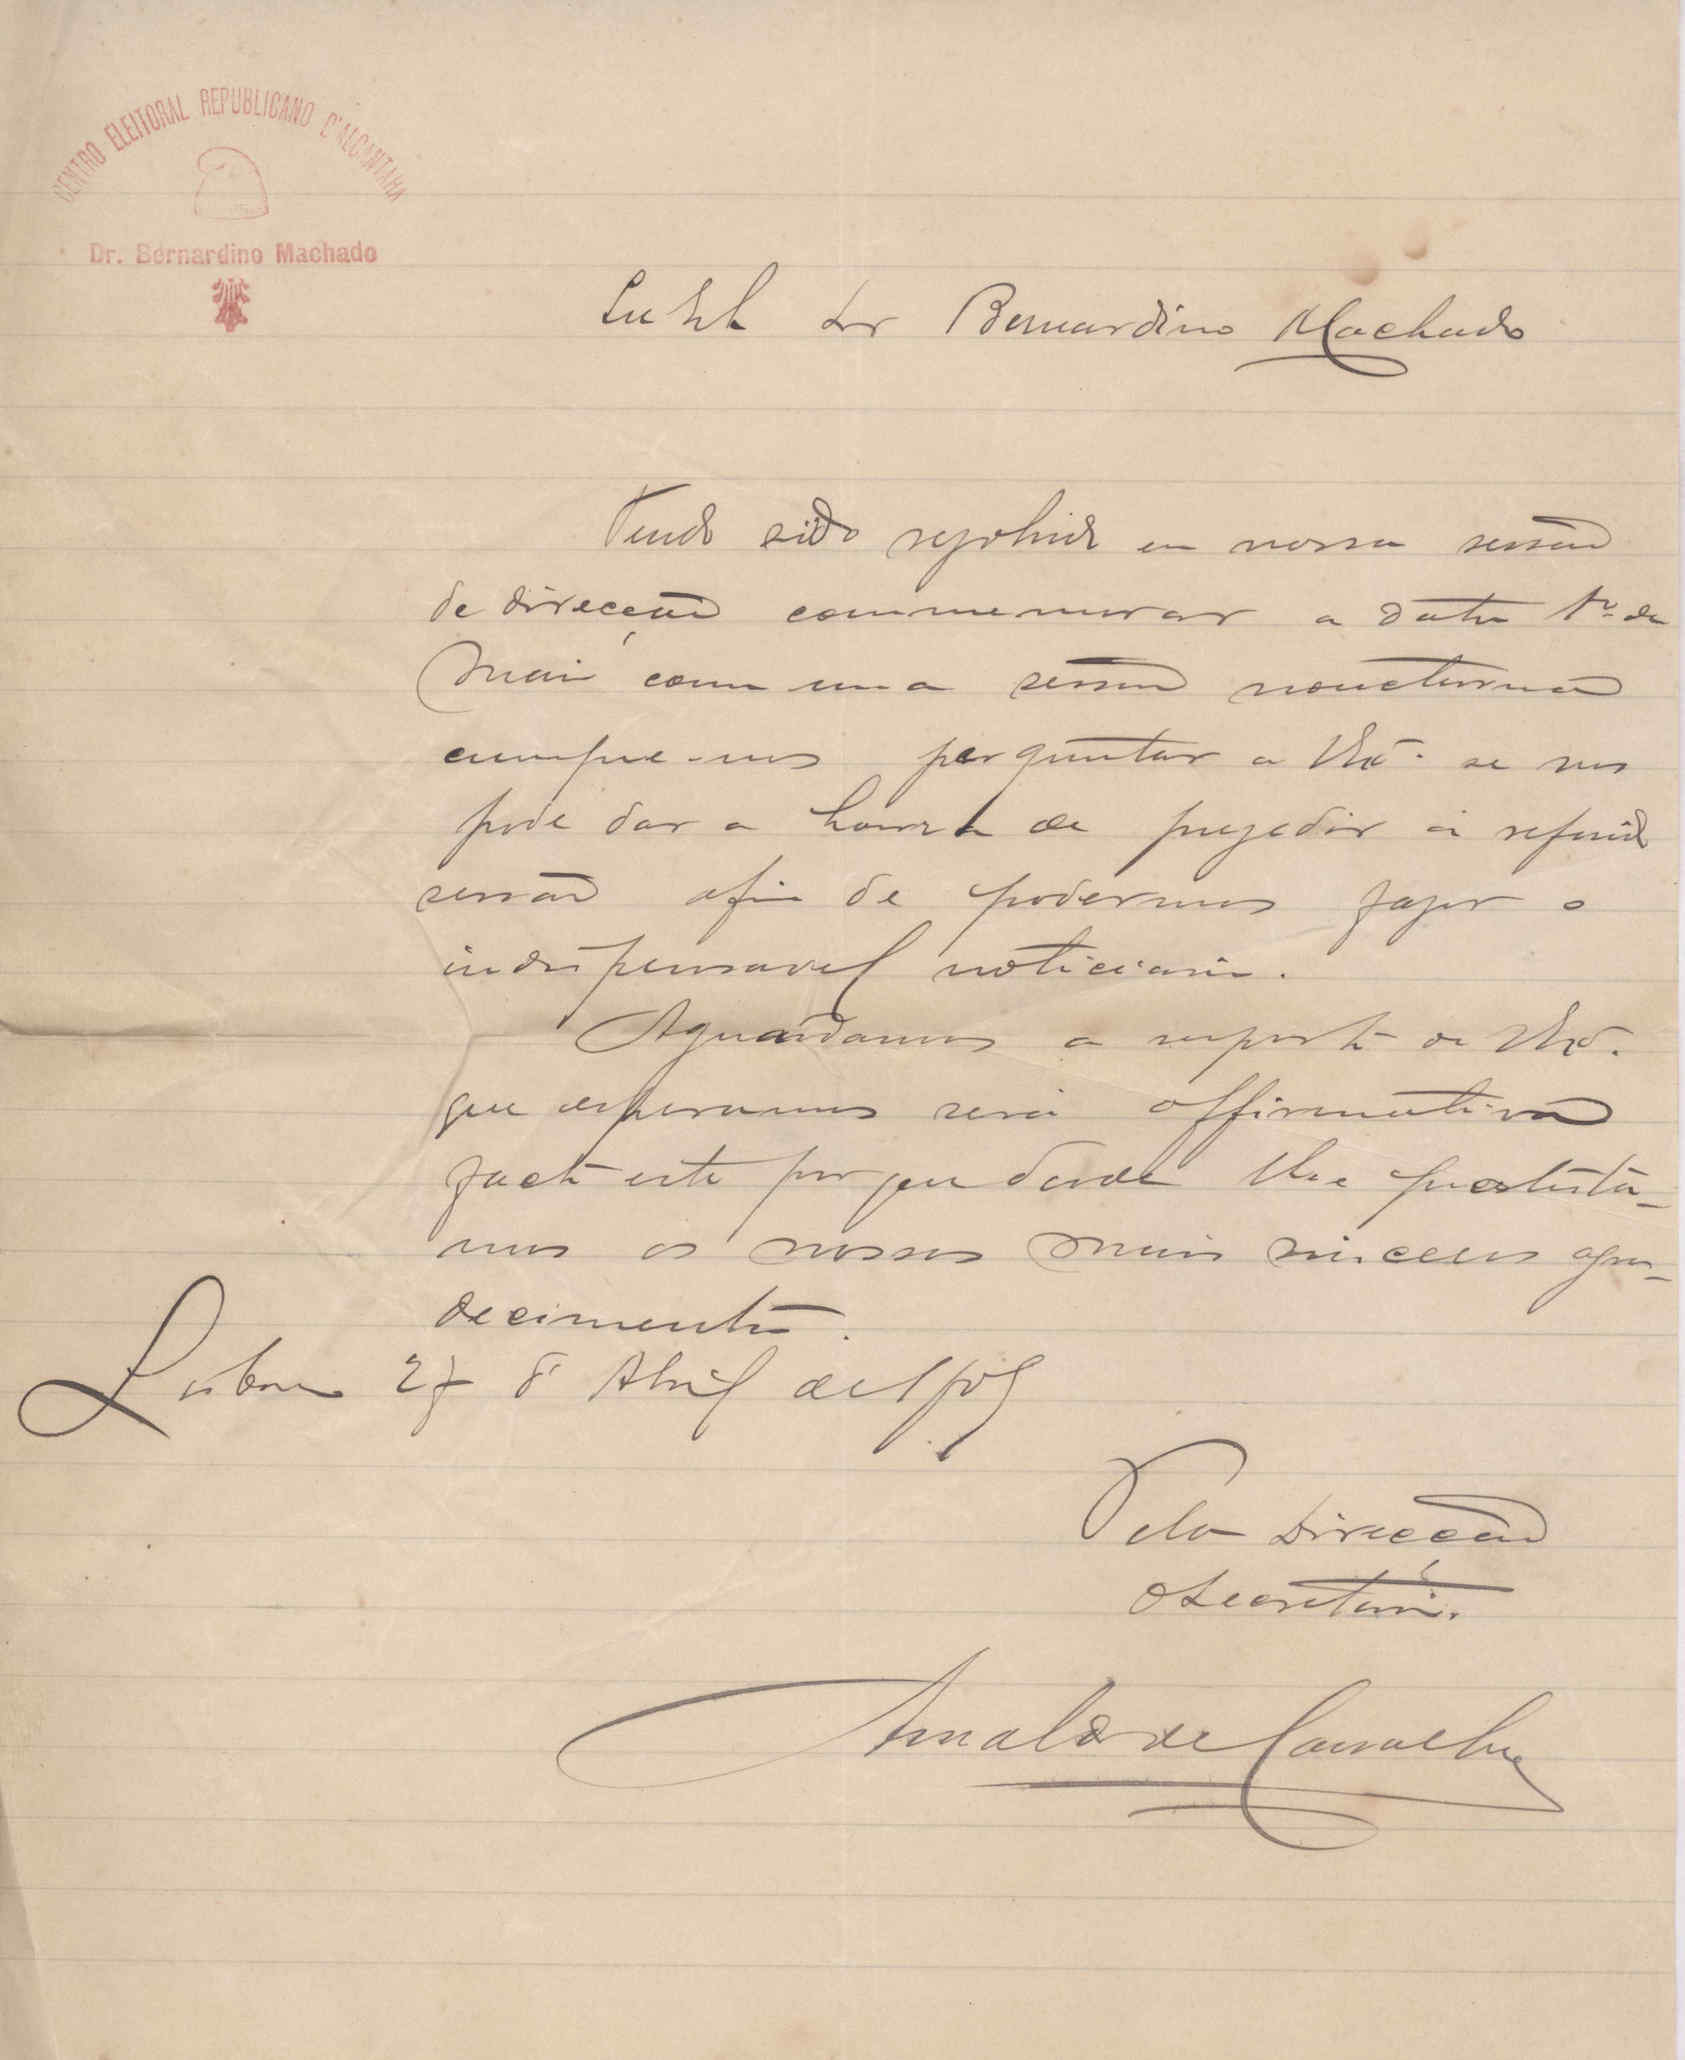 CENTRO ELEITORAL REPUBLICANO D'ALCANTARA
Dr. Bernardino Machado
Dr Bernardino Machado
Tendo sido resolvido em nossa sessão
de direcção commemorar a data 1º de
Maio com uma sessão noucturna
cumpre-nos perguntar a V. Exª. se nos
pode dar a honra de prezedir á referida
sessão afim de podermos fazer o
indispensavel noticiario.
Aguardamos a resposta de V. Exª.
que esperamos será affirmativa
facto este por que desde já protesta-
mos os nossos mais sinceros agra-
decimentos.
Lisboa 27 d' Abril de
Pela Direcção
O Secretario.
Arnaldo de Carvalho